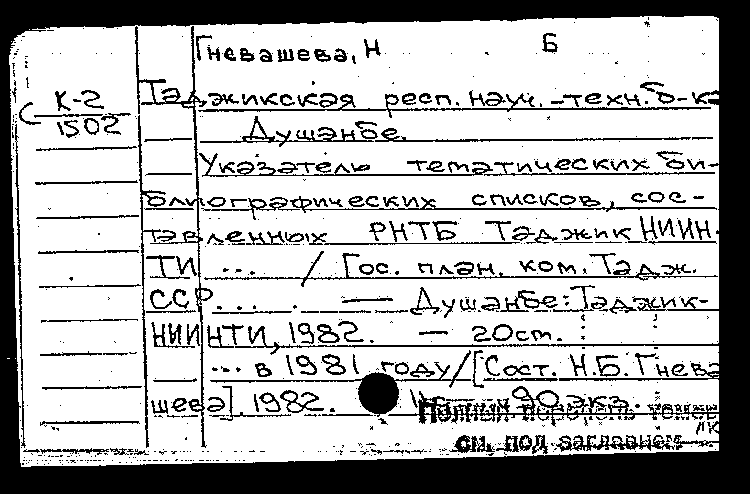 Гневашева, Н Б
К-2
1502
Таджикская респ. науч.-техн. б-ка
Душанбе.
Указатель тематических би-
блиографических списков, сос-
тавленных РНТБ ТаджикНИИН-
ТИ ... / Гос. план. ком. Тадж.
ССР. . . . — Душанбе: Таджик-
НИИНТИ, 1982. — 20см.
... в 1981 году/[Сост. Н.Б. Гнева
шева]. 1982. 90 экз.
Полный перечень томов
см. под заглавием